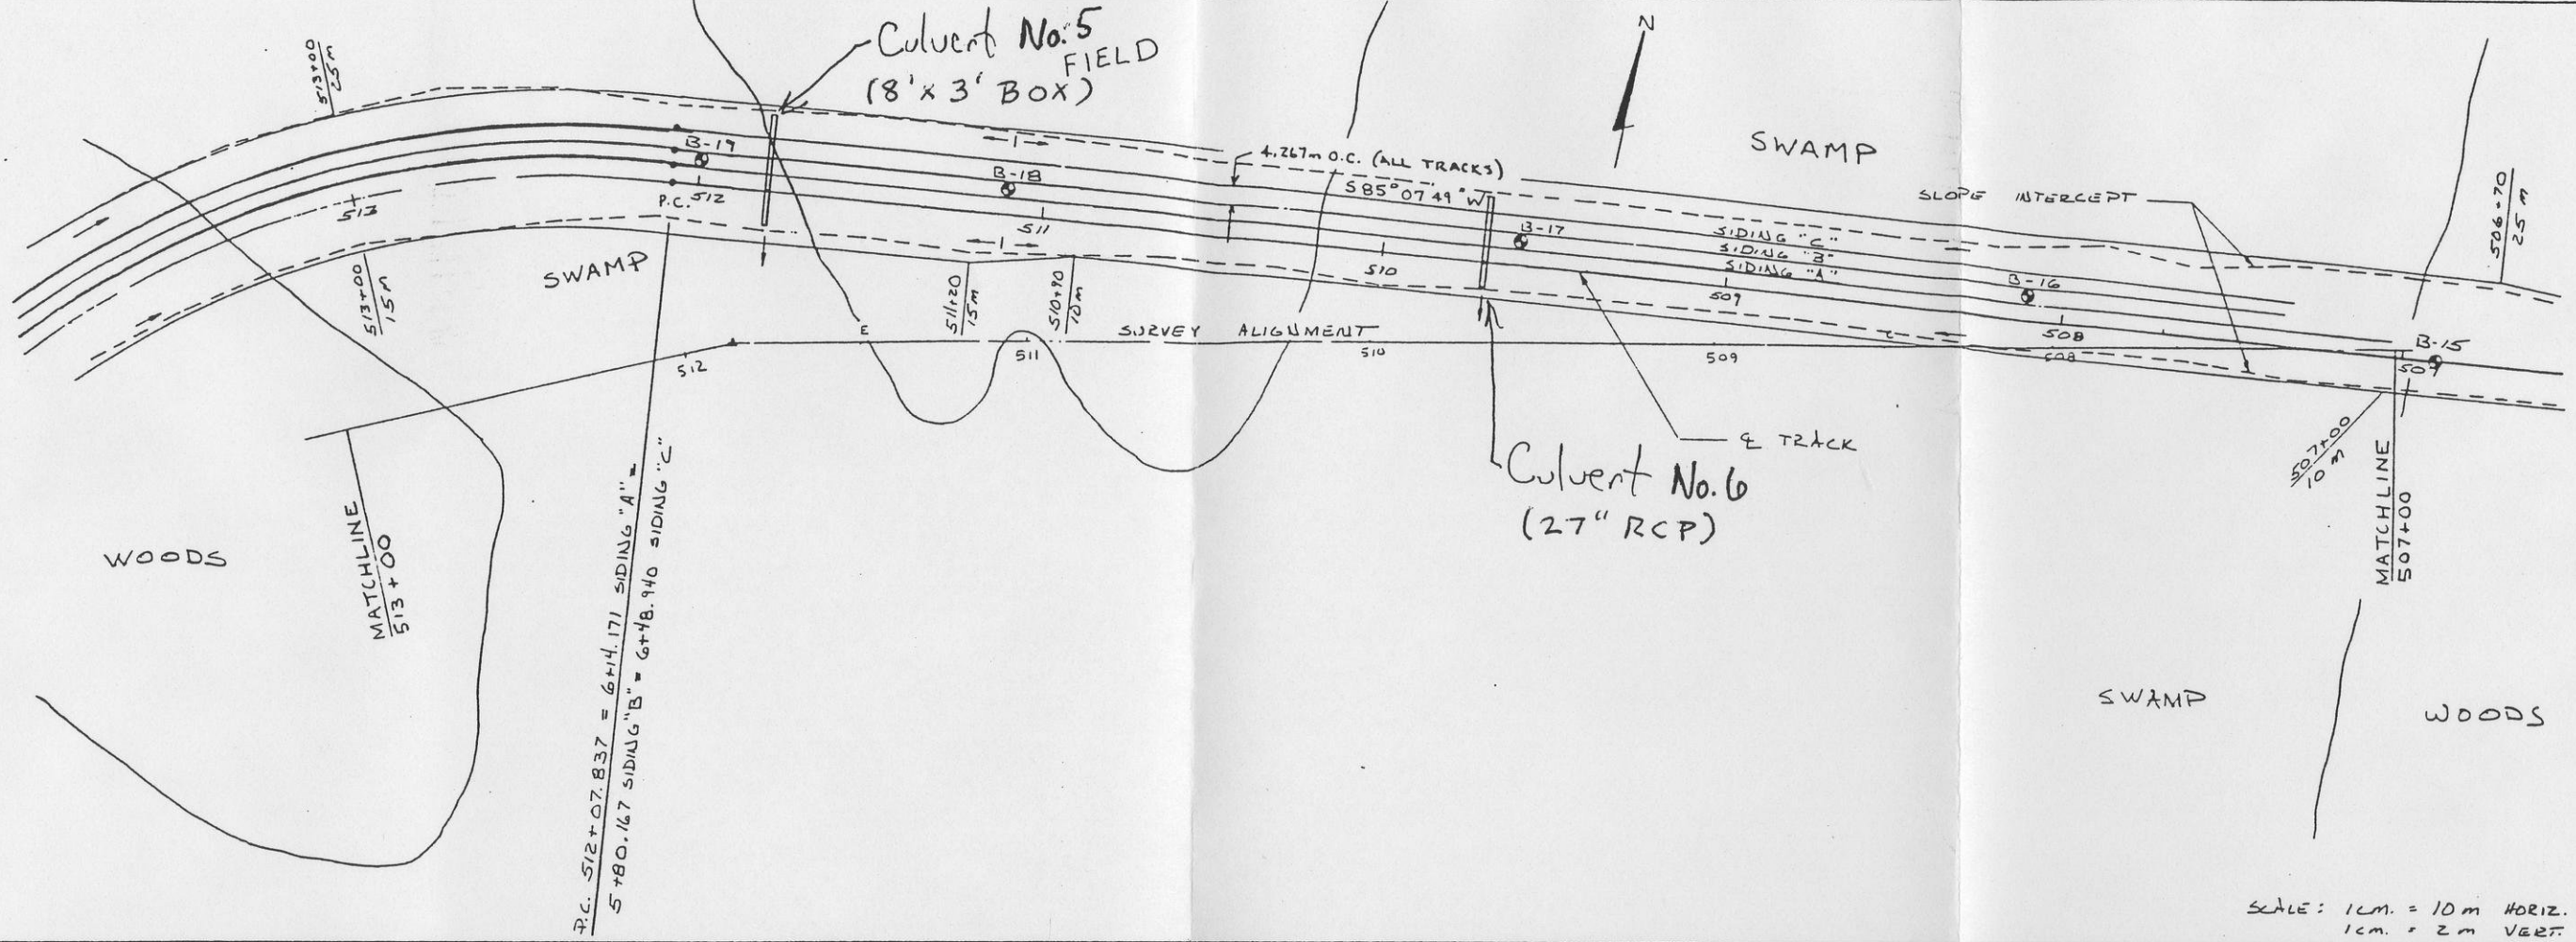 Culvert No. 5
FIELD
(8' x 3' BOX)
N
SWAMP
513+00
25 m
B-19
B-18
4.267m O.C. (ALL TRACKS)
S 85° 07' 49" W
B-17
SLOPE INTERCEPT
506+70
25 m
SIDING "C"
SIDING "B"
SIDING "A"
513
P.C.
512
511
510
509
B-16
508
B-15
507
SWAMP
513+00
15 m
511+20
15 m
510+90
10 m
E
SURVEY ALIGNMENT
512
511
510
509
508
℄ TRACK
Culvert No. 6
(27" RCP)
507+00
10 m
MATCHLINE
507+00
WOODS
MATCHLINE
513+00
P.C. 512+07.837 = 6+14.171 SIDING "A" =
5+80.167 SIDING "B" = 6+48.940 SIDING "C"
SWAMP
WOODS
SCALE: 1cm. = 10m HORIZ.
1cm. = 2m VERT.